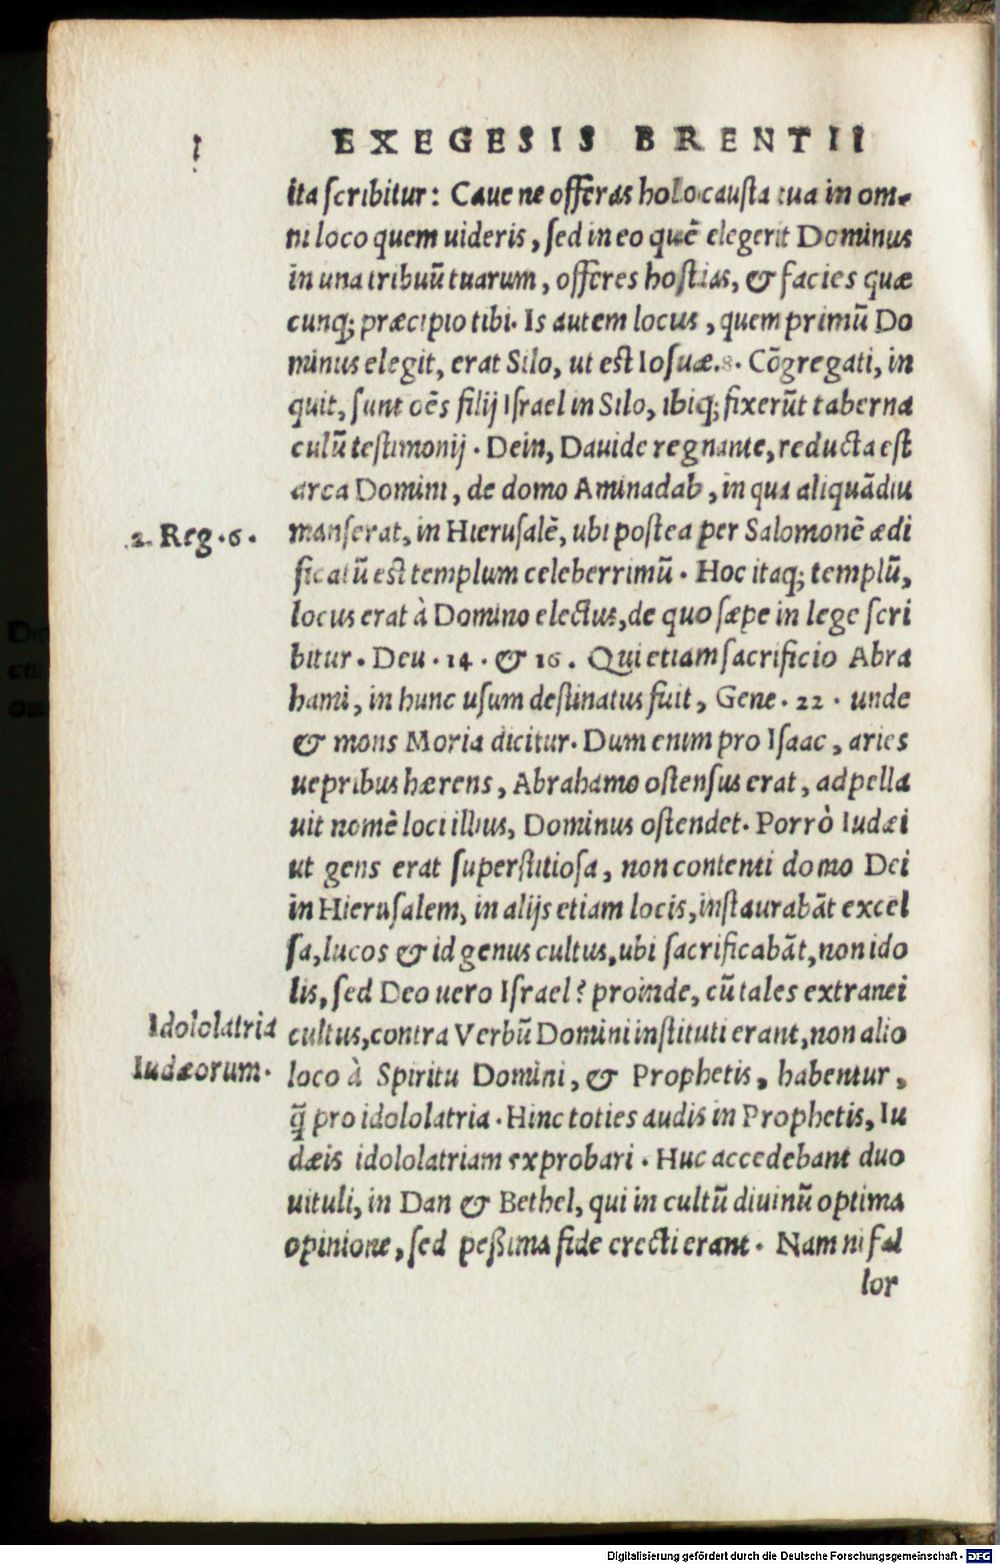 EXEGESIS BRENTII
ita ſcribitur: Caue ne offeras holocauſta tua in om-
ni loco quem uideris, ſed in eo quẽ elegerit Dominus
in una tribuũ tuarum, offeres hoſtias, & facies quæ
cunq; præcipio tibi. Is autem locus, quem primũ Do
minus elegit, erat Silo, ut eſt Ioſuæ.8. Cõgregati, in
quit, ſunt oẽs filij Iſrael in Silo, ibiq; fixerũt taberna
culũ teſtimonij. Dein, Dauide regnante, reducta eſt
arca Domini, de domo Aminadab, in qua aliquãdiu
2. Reg. 6. manſerat, in Hieruſalẽ, ubi poſtea per Salomonẽ ædi
ficatũ eſt templum celeberrimũ. Hoc itaq; templũ,
locus erat à Domino electus, de quo ſæpe in lege ſcri
bitur. Deu. 14. & 16. Qui etiam ſacrificio Abra
hami, in hunc uſum deſtinatus fuit, Gene. 22. unde
& mons Moria dicitur. Dum enim pro Iſaac, aries
uepribus hærens, Abrahamo oſtenſus erat, adpella
uit nomẽ loci illius, Dominus oſtendet. Porrò Iudæi
ut gens erat ſuperſtitioſa, non contenti domo Dei
in Hieruſalem, in alijs etiam locis, inſtaurabãt excel
ſa, lucos & id genus cultus, ubi ſacrificabãt, non ido
lis, ſed Deo uero Iſrael? proinde, cũ tales extranei
Idololatria cultus, contra Verbũ Domini inſtituti erant, non alio
Iudæorum. loco à Spiritu Domini, & Prophetis, habentur,
q̃ pro idololatria. Hinc toties audis in Prophetis, Iu
dæis idololatriam exprobari. Huc accedebant duo
uituli, in Dan & Bethel, qui in cultũ diuinũ optima
opinione, ſed peßima fide erecti erant. Nam ni fal
lor
Digitalisierung gefördert durch die Deutsche Forschungsgemeinschaft - DFG